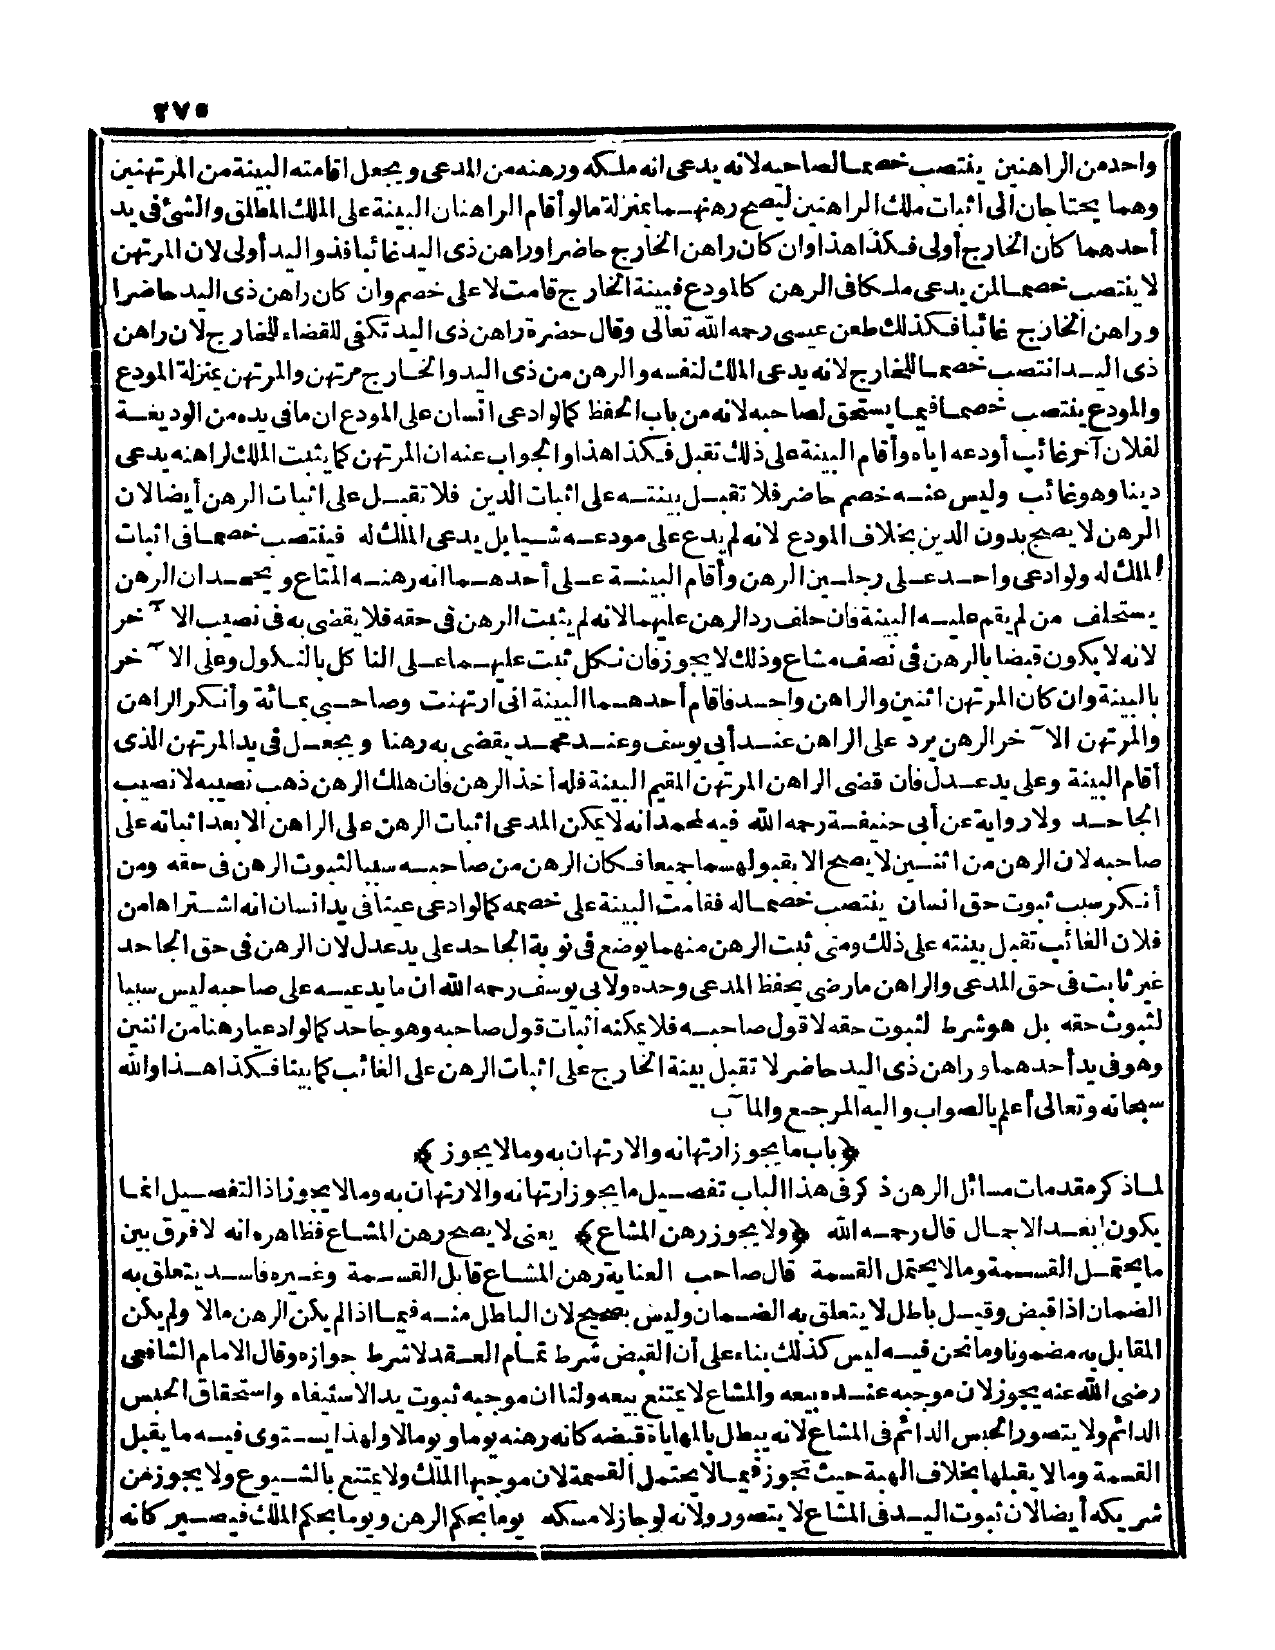 ٢٧٥
واحد من الراهنين ينتصب خصما لصاحبه لانه يدعى انه ملكه ورهنه من المدعى ويجعل اقامته البينة من المرتهنين
وهما يحتاجان الى اثبات ملك الراهنين ليصح رهنهما بمنزلة مالو أقام الراهنان البينة على الملك المطلق والشئ فى يد
أحدهما كان الخارج أولى فكذا هذا وان كان راهن الخارج حاضرا وراهن ذى اليد غائبا فذو اليد أولى لان المرتهن
لا ينتصب خصما لمن يدعى ملكا فى الرهن كالمودع فبينة الخارج قامت لا على خصم وان كان راهن ذى اليد حاضرا
وراهن الخارج غائبا فكذلك طعن عيسى رحمه الله تعالى وقال حضرة راهن ذى اليد تكفى للقضاء للخارج لان راهن
ذى اليد انتصب خصما للخارج لانه يدعى الملك لنفسه والرهن من ذى اليد والخارج مرتهن والمرتهن بمنزلة المودع
والمودع ينتصب خصما فيما يستحق لصاحبه لانه من باب الحفظ كما لو ادعى انسان على المودع ان مافى يده من الوديعة
لفلان آخر غائب أودعه اياه وأقام البينة على ذلك تقبل فكذا هذا والجواب عنه ان المرتهن كما يثبت الملك لراهنه يدعى
دينا وهو غائب وليس عنه خصم حاضر فلا تقبل بينته على اثبات الدين فلا تقبل على اثبات الرهن أيضا لان
الرهن لا يصح بدون الدين بخلاف المودع لانه لم يدع على مودعه شيا بل يدعى الملك له فينتصب خصما فى اثبات
الملك له ولو ادعى واحد على رجلين الرهن وأقام البينة على أحدهما انه رهنه المتاع ويجحدان الرهن
يستحلف من لم يقم عليه البينة فان حلف رد الرهن عليهما لانه لم يثبت الرهن فى حقه فلا يقضى به فى نصيب الآخر
لانه لا يكون قبضا بالرهن فى نصف مشاع وذلك لا يجوز فان نكل ثبت عليهما على الناكل بالنكول وعلى الآخر
بالبينة وان كان المرتهن اثنين والراهن واحد فاقام أحدهما البينة انى ارتهنت وصاحبى بمائة وأنكر الراهن
والمرتهن الآخر الرهن يرد على الراهن عند أبى يوسف وعند محمد يقضى به رهنا ويجعل فى يد المرتهن الذى
أقام البينة وعلى يد عدل فان قضى الراهن المرتهن المقيم البينة فله أخذ الرهن فان هلك الرهن ذهب نصيبه لا نصيب
الجاحد ولا رواية عن أبى حنيفة رحمه الله فيه لمحمد انه لا يمكن المدعى اثبات الرهن على الراهن الا بعد اثباته على
صاحبه لان الرهن من اثنين لا يصح الا بقبولهما جميعا فكان الرهن من صاحبه سببا لثبوت الرهن فى حقه ومن
أنكر سبب ثبوت حق انسان ينتصب خصما له فقامت البينة على خصمه كما لو ادعى عينا فى يد انسان انه اشتراها من
فلان الغائب تقبل بينته على ذلك ومتى ثبت الرهن منهما يوضع فى نوبة الجاحد على يد عدل لان الرهن فى حق الجاحد
غير ثابت فى حق المدعى والراهن ما رضى بحفظ المدعى وحده ولابى يوسف رحمه الله ان ما يدعيه على صاحبه ليس سببا
لثبوت حقه بل هو شرط لثبوت حقه لا قول صاحبه فلا يمكنه اثبات قول صاحبه وهو جاحد كما لو ادعيا رهنا من اثنين
وهو فى يد أحدهما وراهن ذى اليد حاضر لا تقبل بينة الخارج على اثبات الرهن على الغائب كما بينا فكذا هذا والله
سبحانه وتعالى أعلم بالصواب واليه المرجع والمآب
﴿باب ما يجوز ارتهانه والارتهان به ومالا يجوز﴾
لما ذكر مقدمات مسائل الرهن ذكر فى هذا الباب تفصيل ما يجوز ارتهانه والارتهان به ومالا يجوز اذ التفصيل انما
يكون بعد الاجمال قال رحمه الله ﴿ولا يجوز رهن المشاع﴾ يعنى لا يصح رهن المشاع فظاهره انه لا فرق بين
ما يحتمل القسمة ومالا يحتمل القسمة قال صاحب العناية رهن المشاع قابل القسمة وغيره فاسد يتعلق به
الضمان اذا قبض وقيل باطل لا يتعلق به الضمان وليس بصحيح لان الباطل منه فيما اذا لم يكن الرهن مالا ولم يكن
المقابل به مضمونا وما نحن فيه ليس كذلك بناء على أن القبض شرط تمام العقد لا شرط جوازه وقال الامام الشافعى
رضى الله عنه يجوز لان موجبه عنده بيعه والمشاع لا يمتنع بيعه ولنا ان موجبه ثبوت يد الاستيفاء واستحقاق الحبس
الدائم ولا يتصور الحبس الدائم فى المشاع لانه يبطل بالمهاياة قبضه كانه رهنه يوما ويوما لا ولهذا يستوى فيه ما يقبل
القسمة ومالا يقبلها بخلاف الهبة حيث تجوز فيما لا يحتمل القسمة لان موجبها الملك ولا يمتنع بالشيوع ولا يجوز من
شريكه أيضا لان ثبوت اليد فى المشاع لا يتصور ولانه لو جاز لامسكه يوما بحكم الرهن ويوما بحكم الملك فيصير كانه